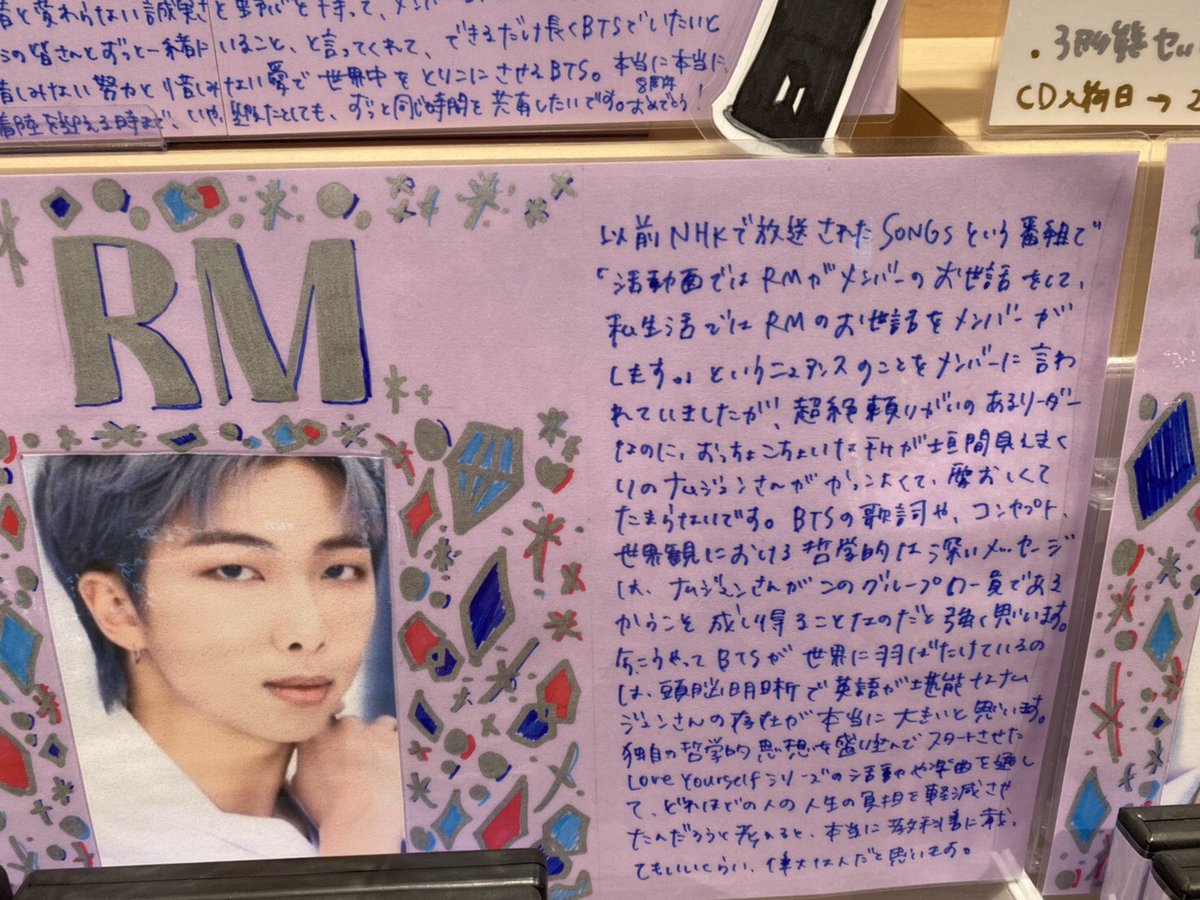 昔と変わらない誠実さと野心と持って、メンバー
の皆さんとずっと一緒にいること、と言ってくれて、できるだけ長くBTSでいたいと
惜しみない努力と惜しみない愛で世界中をとりこにさせるBTS。本当に本当に
8周年
着陸を迎える時まで、いや、迎えたとしても、ずっと同じ時間を共有したいです。おめでとう!
・3形態セッ
CD入荷日→2
RM
以前NHKで放送されたSONGSという番組で
「活動面ではRMがメンバーのお世話をして、
私生活ではRMのお世話をメンバーが
します。」というニュアンスのことをメンバーに言わ
れていましたが、超絶頼りがいのあるリーダー
なのに、おっちょこちょいな所が垣間見えまく
りのナムジュンさんがかっこよくて、愛おしくて
たまらないです。BTSの歌詞や、コンセプト、
世界観における哲学的な深いメッセージ
は、ナムジュンさんがこのグループの一員である
からこそ成し得ることなのだと強く思います。
今こうやってBTSが世界に羽ばたけているの
は、頭脳明晰で英語が堪能なナム
ジュンさんの存在が本当に大きいと思います。
独自の哲学的思想を盛り込んでスタートさせた
Love Yourselfシリーズの活動や楽曲を通し
て、どれほどの人の人生の負担を軽減させ
たんだろうと考えると、本当に教科書に載っ
てもいいくらい、偉大な人だと思います。